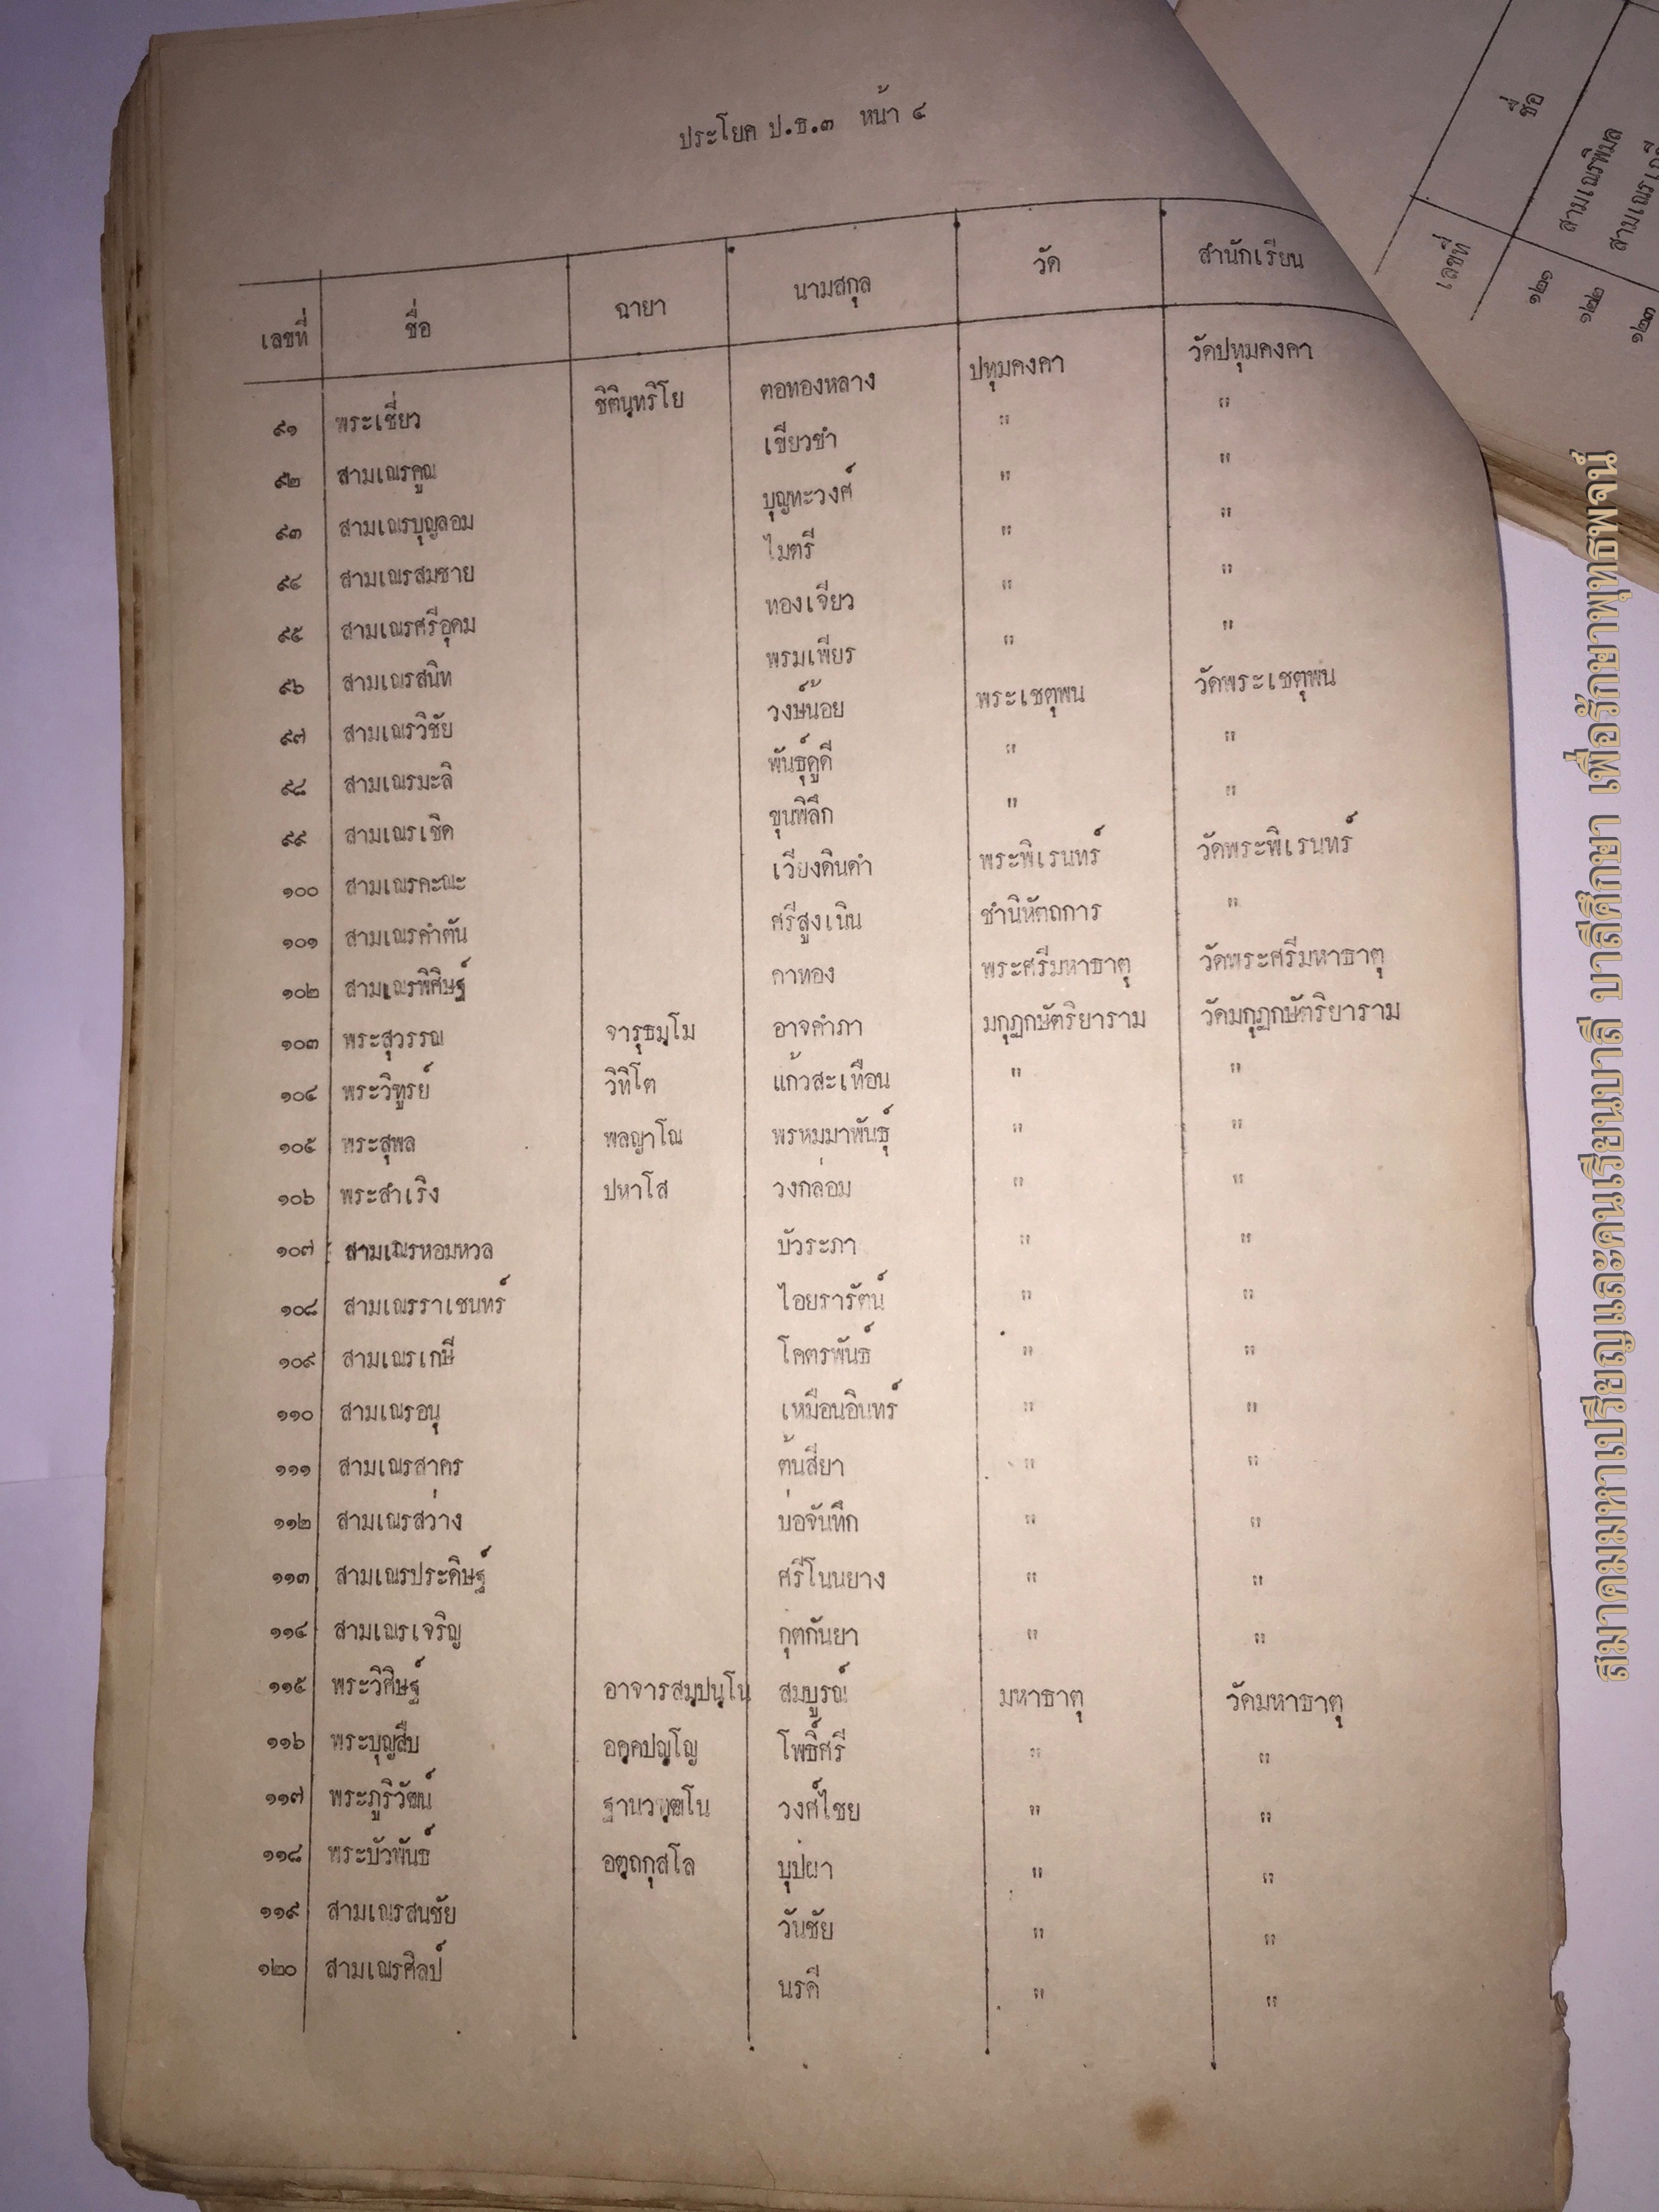 ประโยค ป.ธ.๓ หน้า ๔
เลขที่ ชื่อ ฉายา นามสกุล วัด สำนักเรียน
๙๑ พระเชี่ยว ชิตินฺทฺริโย ตอทองหลาง ปทุมคงคา วัดปทุมคงคา
๙๒ สามเณรคูณ เขียวขำ " "
๙๓ สามเณรบุญลอม บุญทะวงศ์ " "
๙๔ สามเณรสมชาย ไมตรี " "
๙๕ สามเณรศรีอุดม ทองเจียว " "
๙๖ สามเณรสนิท พรมเพียร " "
๙๗ สามเณรวิชัย วงษ์น้อย พระเชตุพน วัดพระเชตุพน
๙๘ สามเณรมะลิ พันธุ์ดูดี " "
๙๙ สามเณรเชิด ขุนพิลึก " "
๑๐๐ สามเณรคะณะ เวียงดินดำ พระพิเรนทร์ วัดพระพิเรนทร์
๑๐๑ สามเณรคำตัน ศรีสูงเนิน ชำนิหัตถการ "
๑๐๒ สามเณรพิศิษฐ์ คาทอง พระศรีมหาธาตุ วัดพระศรีมหาธาตุ
๑๐๓ พระสุวรรณ จารุธมฺโม อาจคำภา มกุฏกษัตริยาราม วัดมกุฏกษัตริยาราม
๑๐๔ พระวิฑูรย์ วิทิโต แก้วสะเทือน " "
๑๐๕ พระสุพล พลญาโณ พรหมมาพันธุ์ " "
๑๐๖ พระสำเริง ปหาโส วงกล่อม " "
๑๐๗ สามเณรหอมหวล บัวระภา " "
๑๐๘ สามเณรราเชนทร์ ไอยรารัตน์ " "
๑๐๙ สามเณรเกษี โคตรพันธ์ " "
๑๑๐ สามเณรอนุ เหมือนอินทร์ " "
๑๑๑ สามเณรสาคร ต้นสียา " "
๑๑๒ สามเณรสว่าง บ่อจันทึก " "
๑๑๓ สามเณรประดิษฐ์ ศรีโนนยาง " "
๑๑๔ สามเณรเจริญ กุตกันยา " "
๑๑๕ พระวิศิษฐ์ อาจารสมฺปนฺโน สมบูรณ์ มหาธาตุ วัดมหาธาตุ
๑๑๖ พระบุญสืบ อคฺคปญฺโญ โพธิ์ศรี " "
๑๑๗ พระภูริวัฒน์ ฐานวฑฺฒโน วงศ์ไชย " "
๑๑๘ พระบัวพันธ์ อตฺถกุสโล บุปผา " "
๑๑๙ สามเณรสนชัย วันชัย " "
๑๒๐ สามเณรศิลป์ นรดี " "
เลขที่ ชื่อ
๑๒๑ สามเณรพิมล
๑๒๒
๑๒๓
สมาคมมหาเปรียญและคนเรียนบาลี บาลีศึกษา เพื่อรักษาพุทธพจน์